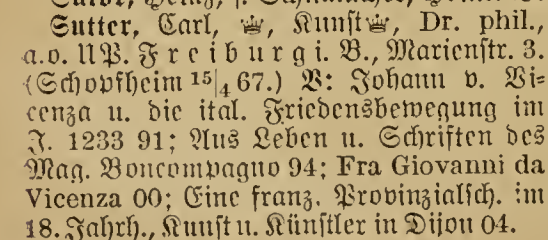 Sutter, Carl, ♛, Kunst♛, Dr. phil.,
a.o. UP. Freiburg i. B., Marienstr. 3.
(Schopfheim 15/4 67.) V: Johann v. Vi=
cenza u. die ital. Friedensbewegung im
J. 1233 91; Aus Leben u. Schriften des
Mag. Boncompagno 94; Fra Giovanni da
Vicenza 00; Eine franz. Provinzialsch. im
18. Jahrh., Kunst u. Künstler in Dijon 04.